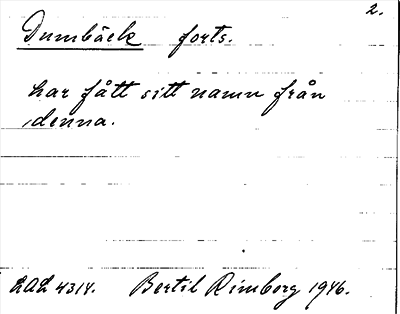 2.
Dumbäck forts.
har fått sitt namn från
denna.
LAL 4314. Bertil Rimborg 1946.